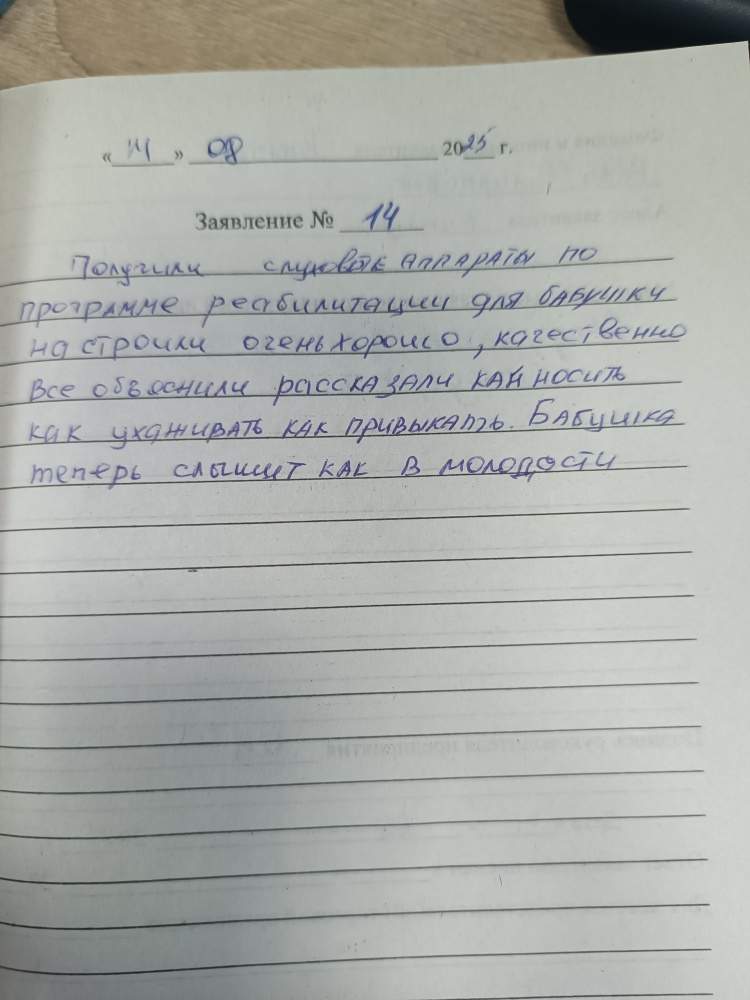 «14» 08 2025 г.
Заявление № 14
Получили слуховые аппараты по
программе реабилитации для бабушки
на строили очень хорошо, качественно
все объяснили рассказали как носить
как ухаживать как привыкать. Бабушка
теперь слышит как в молодости